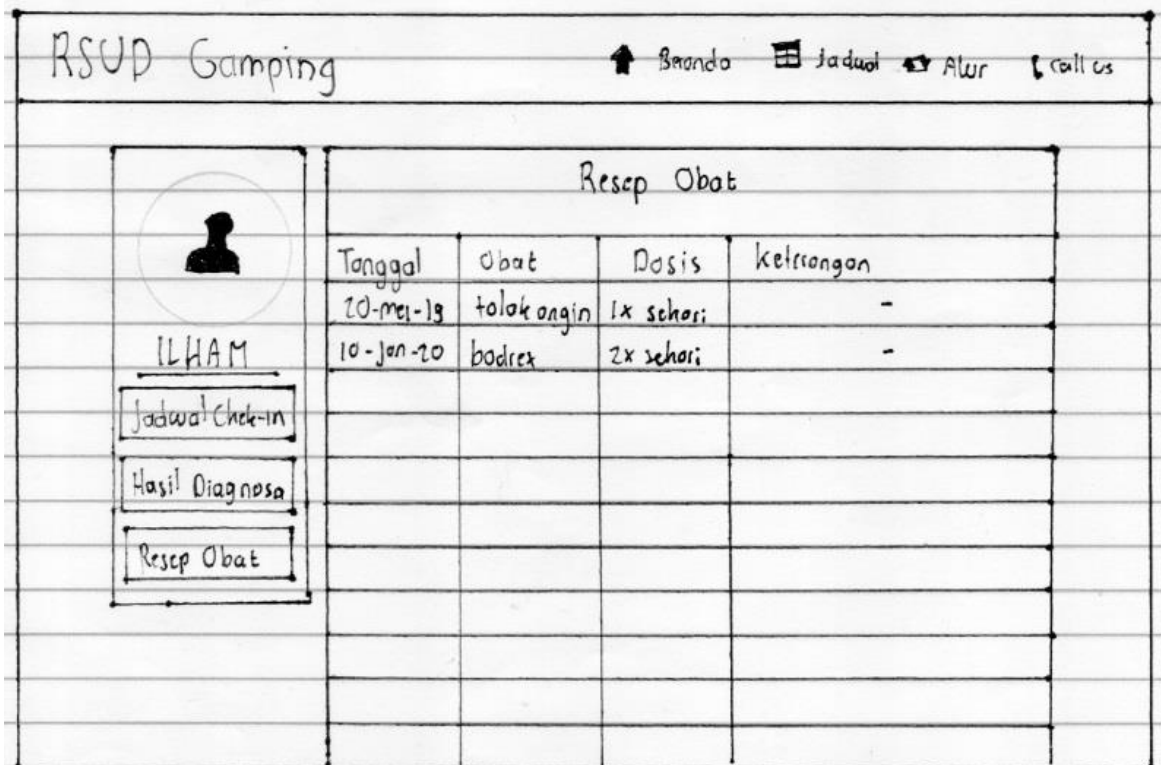 RSUD Gamping
Beranda Jadwal Alur Call us
ILHAM
Jadwal Chek-in
Hasil Diagnosa
Resep Obat
Resep Obat
Tanggal Obat Dosis Keterangan
20-mei-19 tolak angin 1x sehari -
10-Jan-20 bodrex 2x sehari -